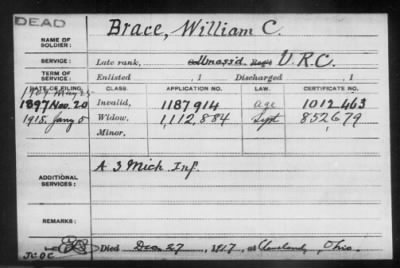 DEAD
NAME OF SOLDIER: Brace, William C.
SERVICE: Late rank, Unass'd V.R.C.
TERM OF SERVICE: Enlisted , 1 Discharged , 1
DATE OF FILING. CLASS. APPLICATION NO. LAW. CERTIFICATE NO.
1907 May
1897 Nov. 20 Invalid, 1187914 age 1012463
1918. Jany 5 Widow, 1,112,884 Sept 852679
Minor,
ADDITIONAL SERVICES: A 3 Mich Inf.
REMARKS:
Died Dec 27, 1917, at Cleveland, Ohio.
JCOC